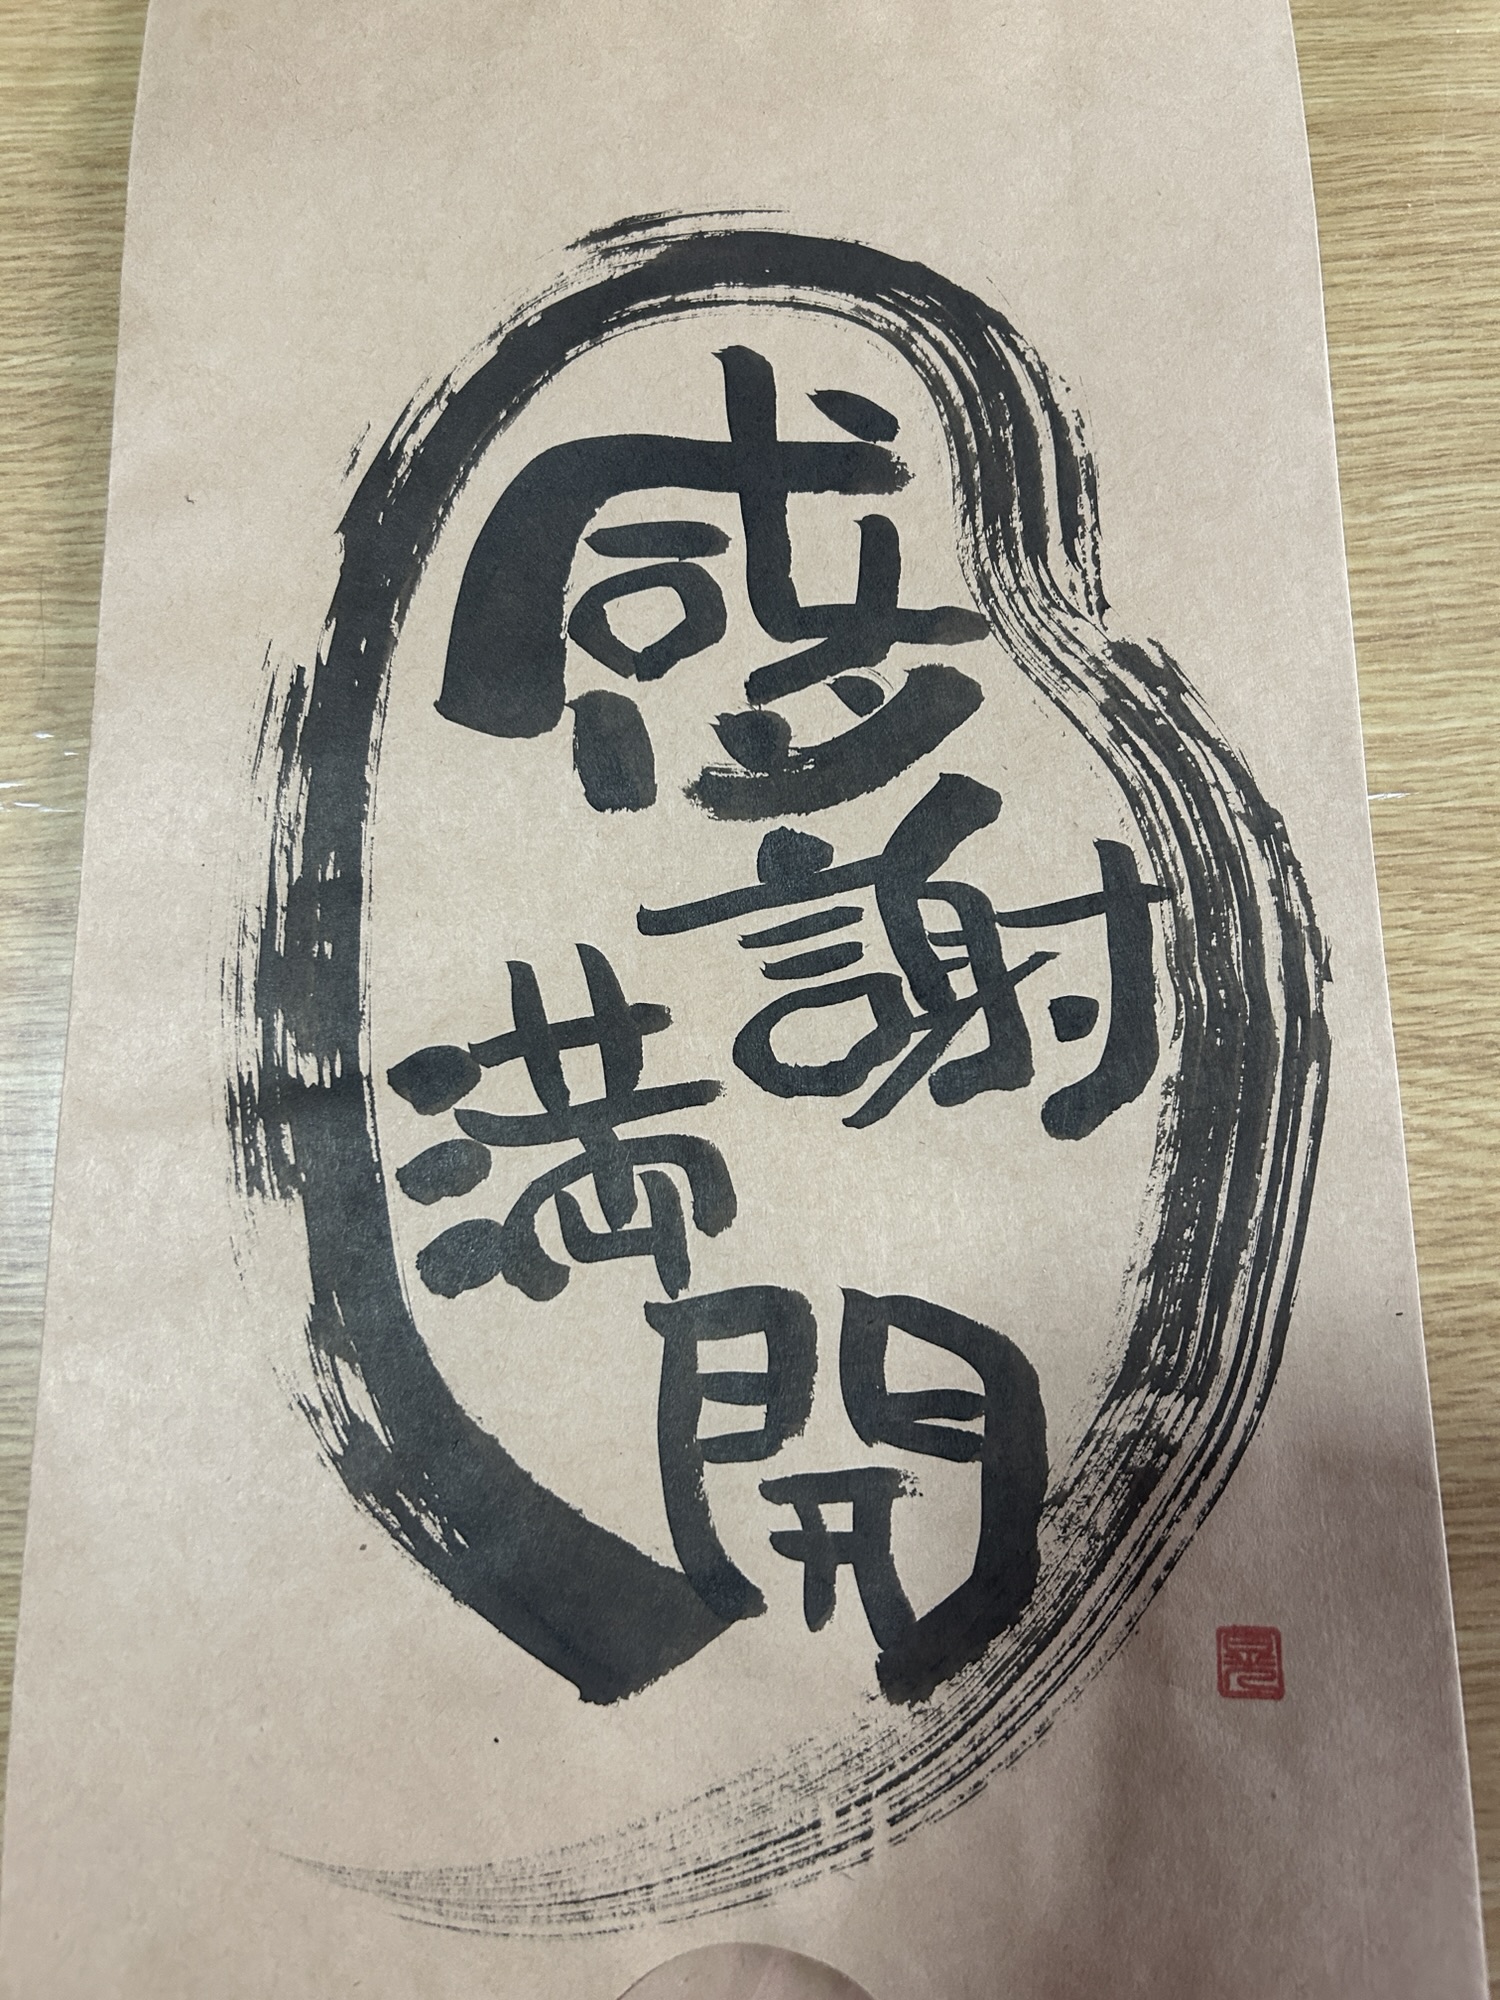 感謝
満開